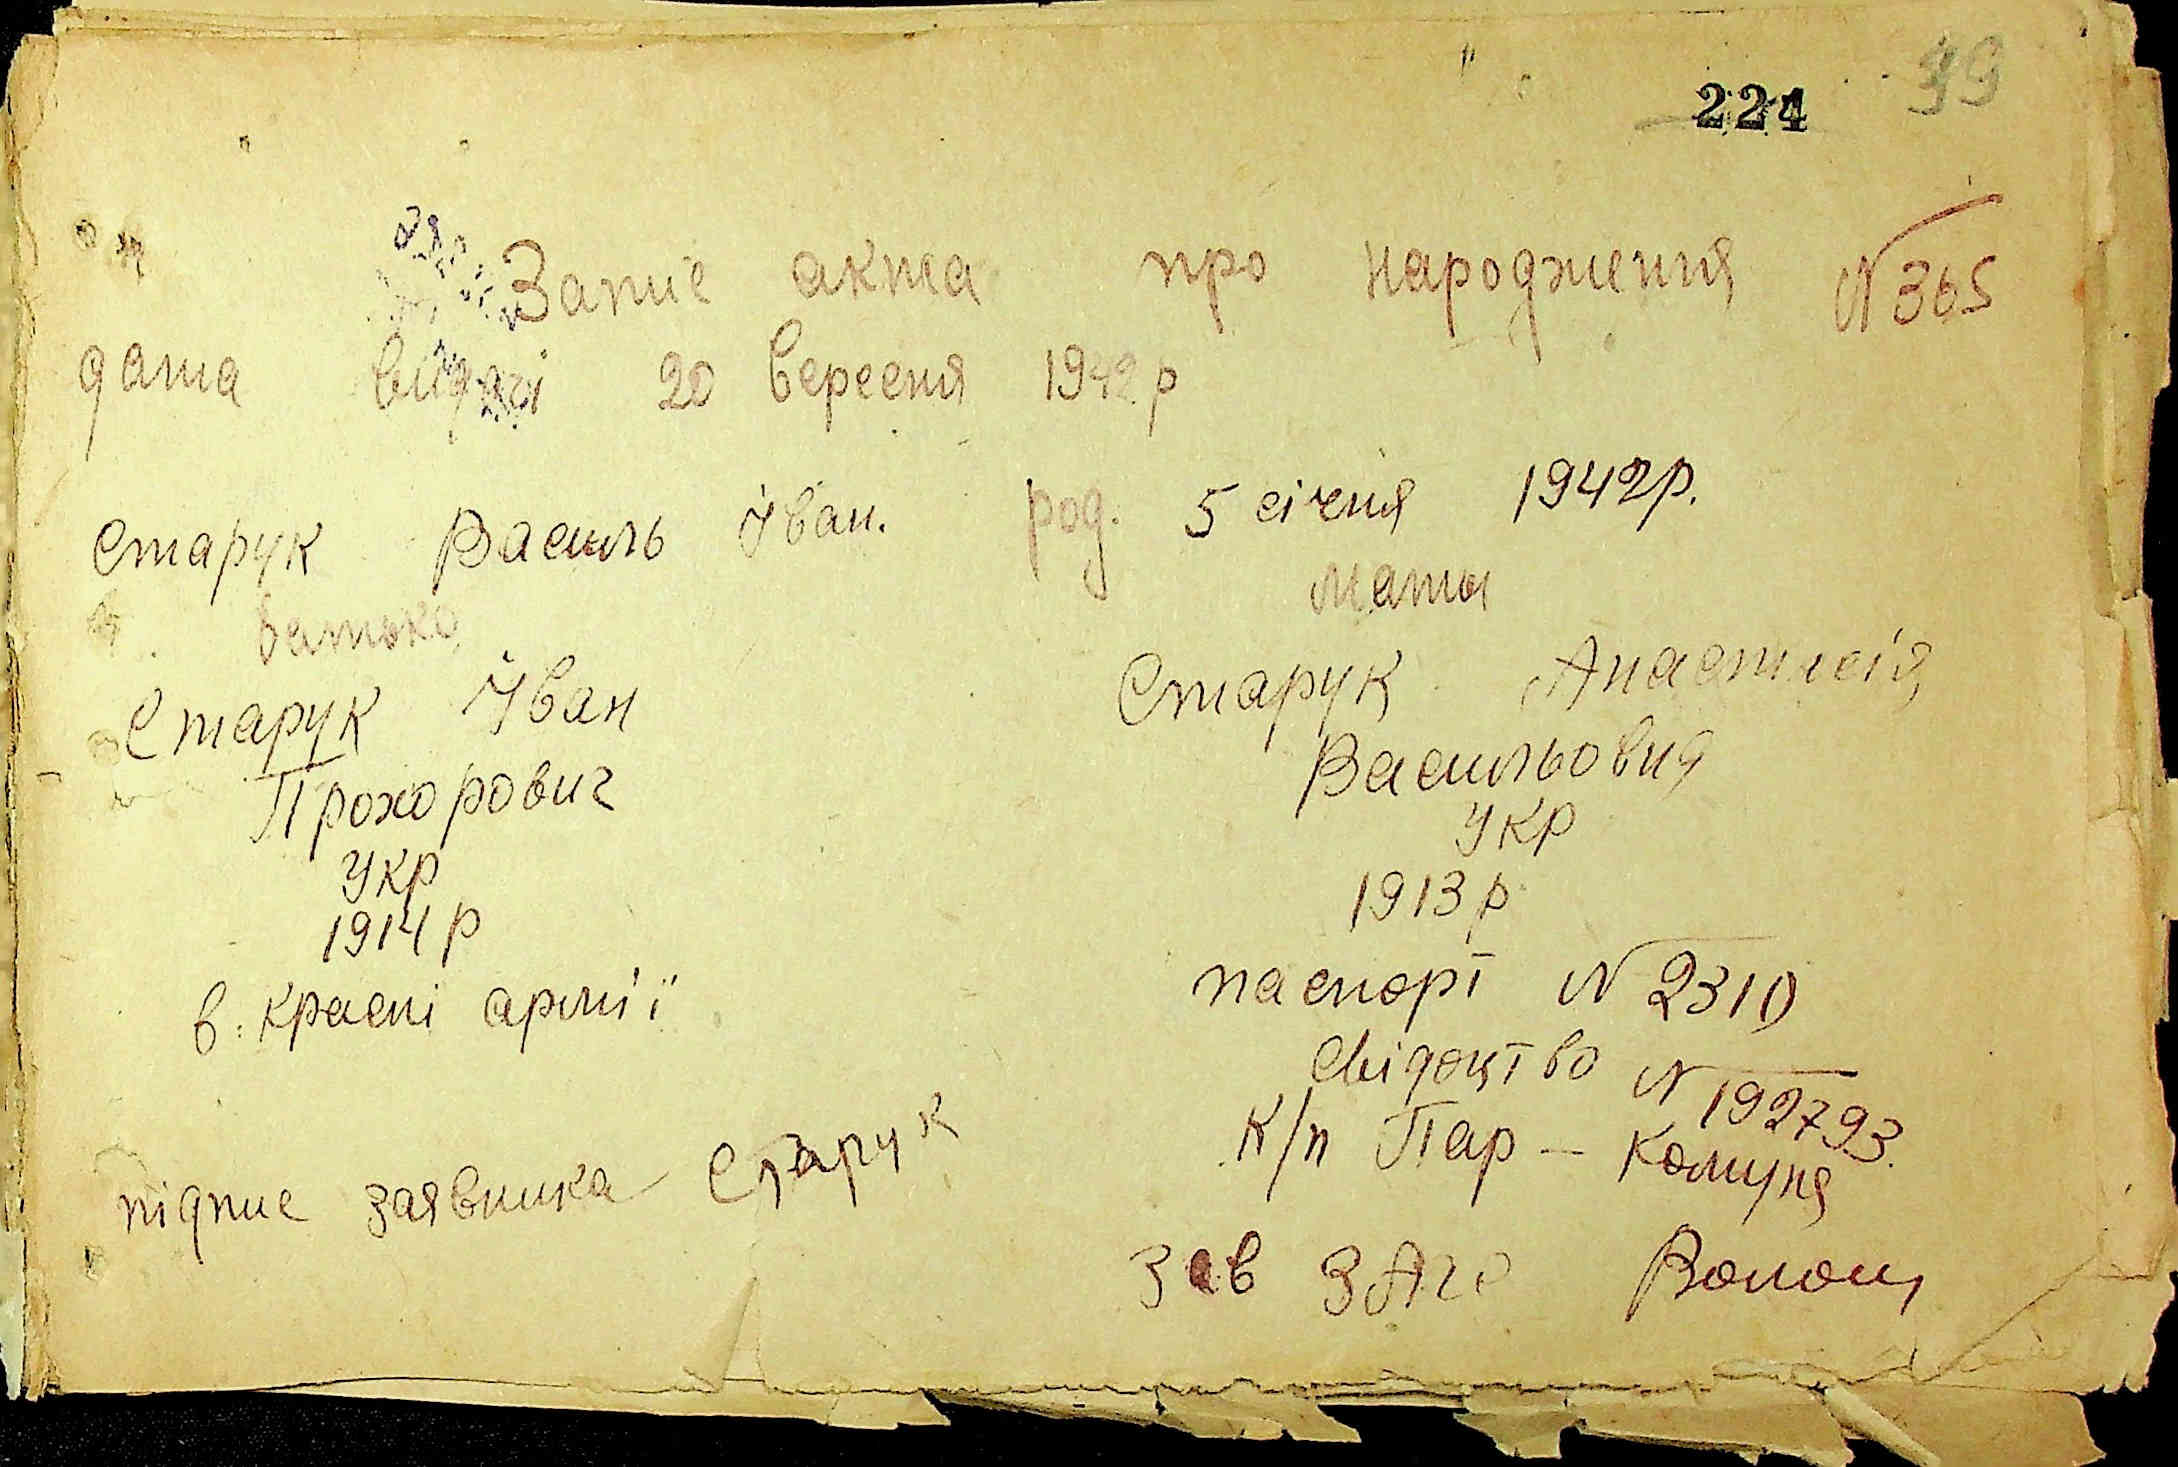 224 39
Запис акта про народження N 365
дата видачі 20 вересня 1942 р
Старук Василь Іван. род. 5 січня 1942 р.
батько мати
Старук Іван Старук Анастасія
Прохорович Васильовна
укр укр
1914 р 1913 р
в. красні армії паспорт N 2310
свідоцтво N 192793.
к/п Пар - Комуня
підпис заявника Старук
Зав ЗАГС